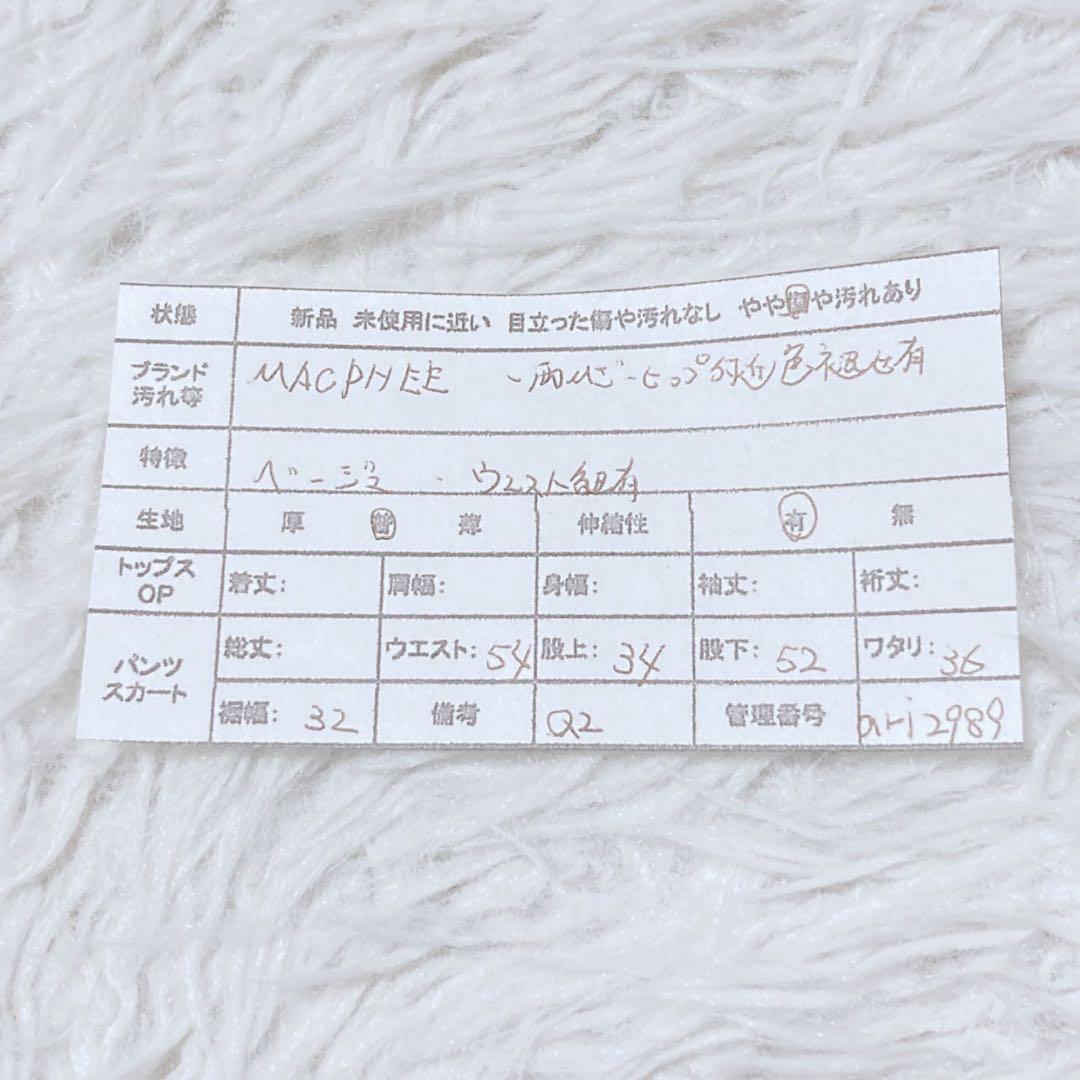 状態 新品 未使用に近い 目立った傷や汚れなし やや傷や汚れあり
ブランド 汚れ等 MACPHEE ・両ひざ・ヒップ付近色褪せ有
特徴 ベージュ ・ウエスト紐有
生地 厚 普 薄 伸縮性 有 無
トップス OP 着丈: 肩幅: 身幅: 袖丈: 裄丈:
パンツ スカート 総丈: ウエスト: 54 股上: 34 股下: 52 ワタリ: 36
裾幅: 32 備考 Q2 管理番号 ari2989